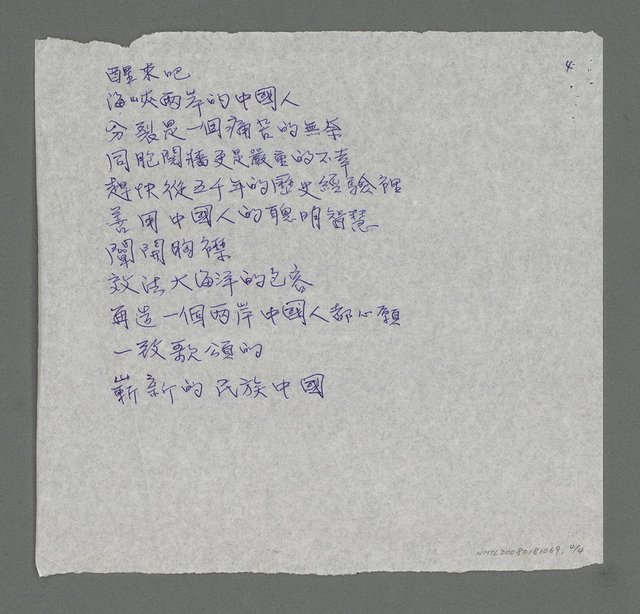 4
醒來吧
海峽兩岸的中國人
分裂是一個痛苦的無奈
同胞鬩牆更是嚴重的不幸
趕快從五千年的歷史經驗裡
善用中國人的聰明智慧
闡開胸襟
效法大海洋的包容
再造一個兩岸中國人都心願
一致歌頌的
嶄新的民族中國
NMTL20080181069, 4/4